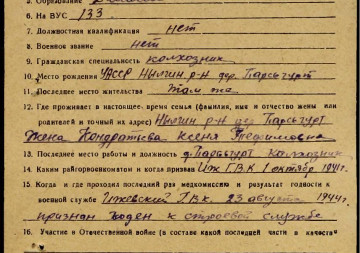 5. Образование
6. На ВУС 133
7. Должностная квалификация нет
8. Военное звание нет
9. Гражданская специальность колхозник
10. Место рождения УАССР Нылгин р-н дер. Парсьгурт
11. Последнее место жительства Там же
12. Где проживает в настоящее время семья (фамилия, имя и отчество жены или
родителей и точный их адрес) Нылгин р-н дер Парсьгурт
Жена Кондратьева Ксеня Трофимовна
13. Последнее место работы и должность д. Парсьгурт Колхозник
14. Каким райгорвоенкоматом и когда призван Иж Г.В.К 1 октябр 1941 г.
15. Когда и где проходил последний раз медкомиссию и результат годности к
военной службе Ижевский Г.В.К. 23 августа 1944 г
признан годен к строевой службе
16. Участие в Отечественной войне (в составе какой последней части и в качестве